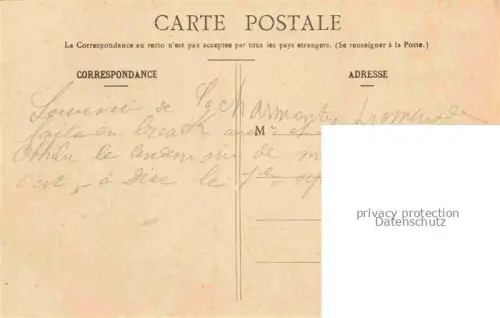 CARTE POSTALE
La Correspondance au recto n'est pas acceptée par tous les pays étrangers. (Se renseigner à la Poste.)
CORRESPONDANCE
ADRESSE
Souvenir de La Charmonte promenade
faite en break avec
M
le lendemain de
c'est à dire le 1er
privacy protection
watermark